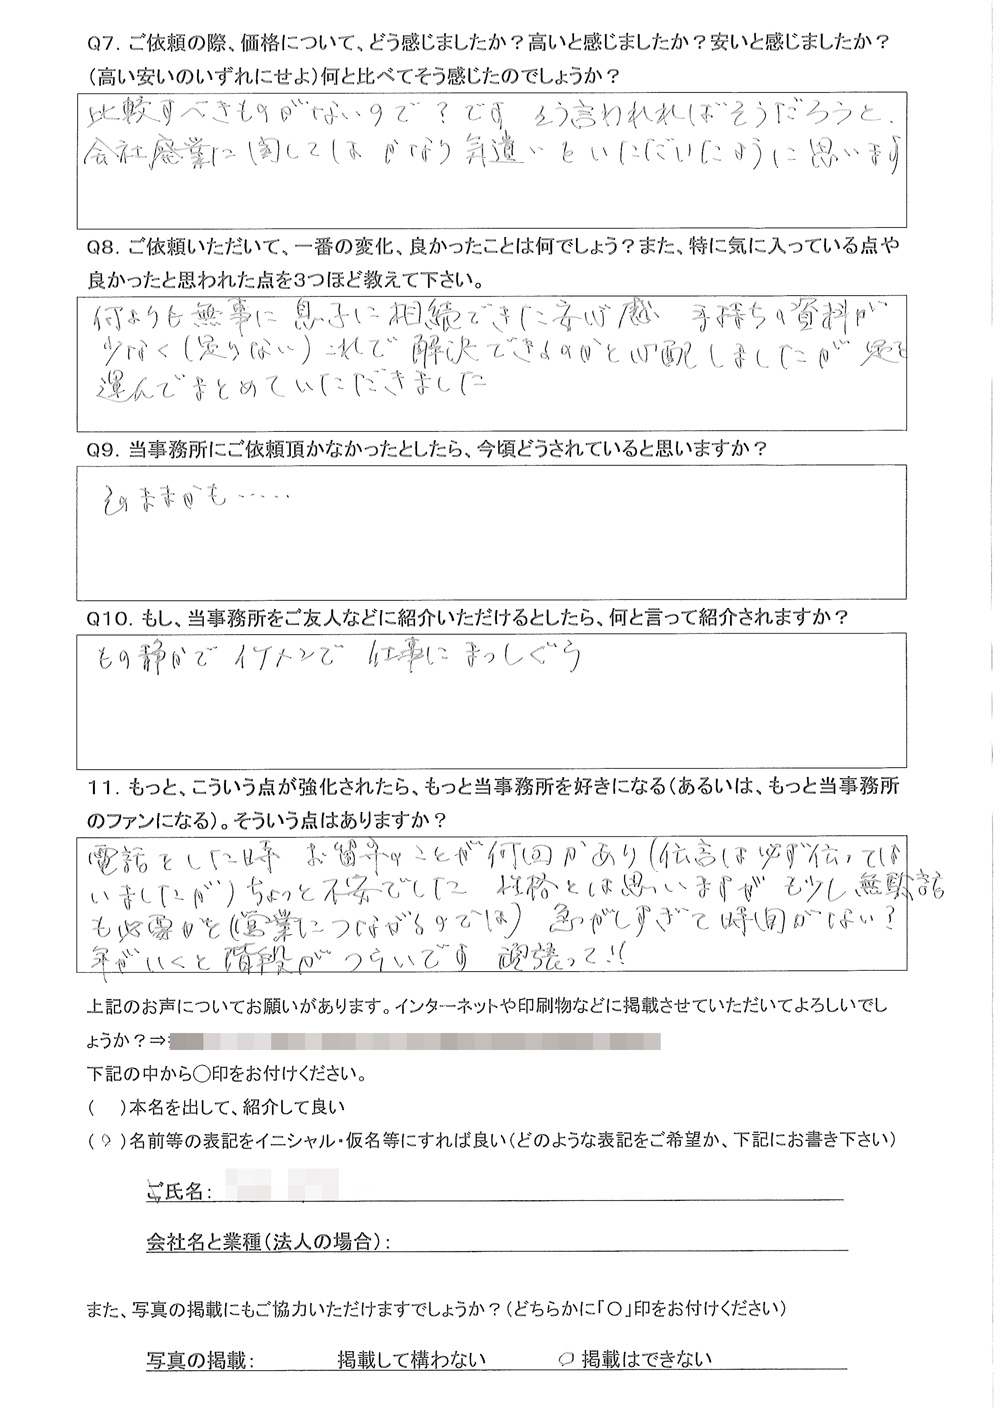 Q7．ご依頼の際、価格について、どう感じましたか？高いと感じましたか？安いと感じましたか？
（高い安いのいずれにせよ）何と比べてそう感じたのでしょうか？
比較すべきものがないので？です そう言われればそうだろうと、
会社廃業に関してはかなり気遣いをいただいたように思います
Q8．ご依頼いただいて、一番の変化、良かったことは何でしょう？また、特に気に入っている点や
良かったと思われた点を3つほど教えて下さい。
何よりも無事に息子に相続できた安心感 手持ちの資料が
少なく（足りない）これで解決できるのかと心配しましたが 足を
運んでまとめていただきました
Q9．当事務所にご依頼頂かなかったとしたら、今頃どうされていると思いますか？
そのままかも……
Q10．もし、当事務所をご友人などに紹介いただけるとしたら、何と言って紹介されますか？
もの静かで イケメンで 仕事にまっしぐら
11．もっと、こういう点が強化されたら、もっと当事務所を好きになる（あるいは、もっと当事務所
のファンになる）。そういう点はありますか？
電話をした時 お留守のことが何回かあり（伝言は必ず伝っては
いましたが）ちょっと不安でした 性格とは思いますが もう少し無駄話
も必要かと（営業につながるのでは） 急がしすぎて時間がない？
年がいくと階段がつらいです 頑張って!!
上記のお声についてお願いがあります。インターネットや印刷物などに掲載させていただいてよろしいでし
ょうか？⇒
下記の中から○印をお付けください。
（　）本名を出して、紹介して良い
（○）名前等の表記をイニシャル・仮名等にすれば良い（どのような表記をご希望か、下記にお書き下さい）
ご氏名：
会社名と業種（法人の場合）：
また、写真の掲載にもご協力いただけますでしょうか？（どちらかに「○」印をお付けください）
写真の掲載： 掲載して構わない ○ 掲載はできない